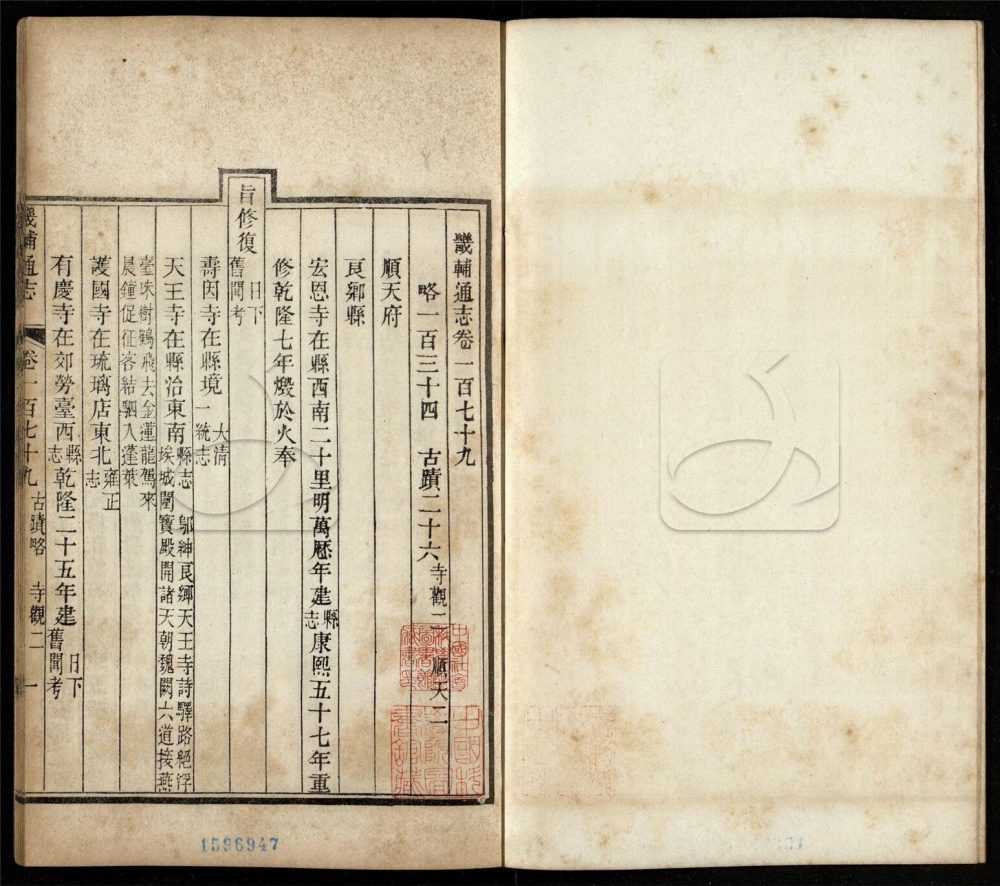 畿輔通志卷一百七十九
略一百三十四　古蹟二十六 寺觀二　順天二
順天府
良鄉縣
宏恩寺在縣西南二十里明萬厯年建縣志康熙五十七年重
修乾隆七年燬於火奉
旨修復日下舊聞考
壽因寺在縣境大清一統志
天王寺在縣治東南縣志　鄔紳良鄉天王寺詩驛路絕浮埃城闉寶殿開諸天朝魏闕六道接燕
臺咮樹鶴飛去金蓮龍駕來晨鐘促征客結駟入蓬萊
護國寺在琉璃店東北雍正志
有慶寺在郊勞臺西縣志乾隆二十五年建日下舊聞考
畿輔通志　卷一百七十九　古蹟略　寺觀二　一
1596947